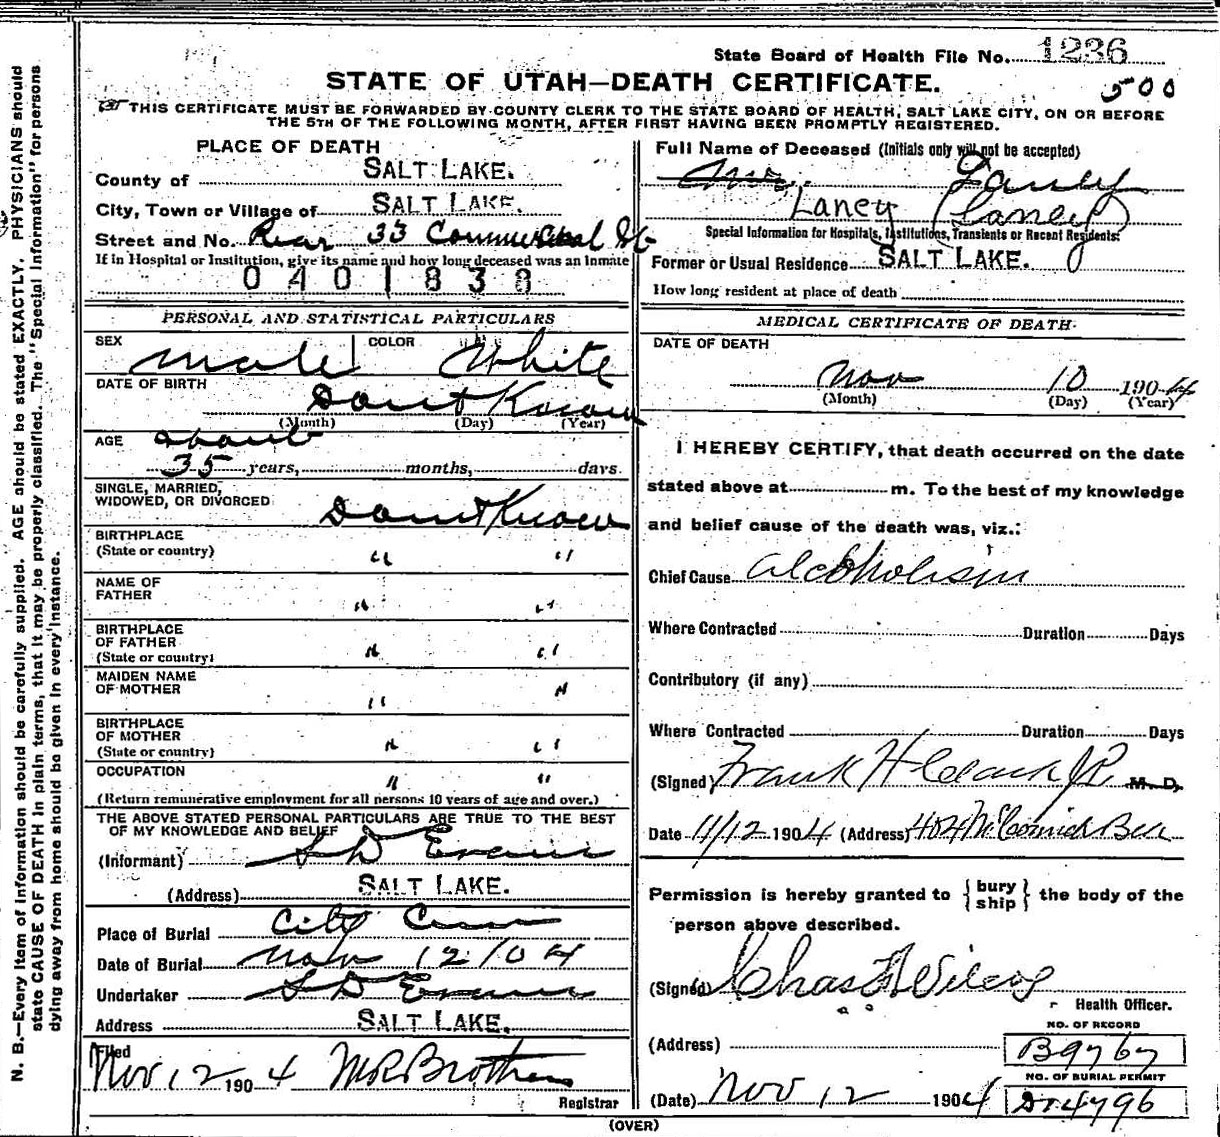 State Board of Health File No. 1236
500
STATE OF UTAH—DEATH CERTIFICATE.
THIS CERTIFICATE MUST BE FORWARDED BY COUNTY CLERK TO THE STATE BOARD OF HEALTH, SALT LAKE CITY, ON OR BEFORE
THE 5TH OF THE FOLLOWING MONTH, AFTER FIRST HAVING BEEN PROMPTLY REGISTERED.
PLACE OF DEATH
County of SALT LAKE.
City, Town or Village of SALT LAKE.
Street and No. Rear 33 Commercial St
If in Hospital or Institution, give its name and how long deceased was an Inmate
0401838
Full Name of Deceased (Initials only will not be accepted)
Laney (Laney)
Special Information for Hospitals, Institutions, Transients or Recent Residents:
Former or Usual Residence SALT LAKE.
How long resident at place of death
PERSONAL AND STATISTICAL PARTICULARS
SEX male COLOR White
DATE OF BIRTH Dont Know
(Month) (Day) (Year)
AGE about
35 years, months, days.
SINGLE, MARRIED,
WIDOWED, OR DIVORCED Dont Know
BIRTHPLACE
(State or country) " "
NAME OF
FATHER " "
BIRTHPLACE
OF FATHER
(State or country) " "
MAIDEN NAME
OF MOTHER " "
BIRTHPLACE
OF MOTHER
(State or country) " "
OCCUPATION " "
(Return remunerative employment for all persons 10 years of age and over.)
THE ABOVE STATED PERSONAL PARTICULARS ARE TRUE TO THE BEST
OF MY KNOWLEDGE AND BELIEF
(Informant) S D Evans
(Address) SALT LAKE.
Place of Burial City Cem
Date of Burial Nov 12/04
Undertaker S D Evans
Address SALT LAKE.
Filed
Nov 12 1904 MR Brothers
Registrar
MEDICAL CERTIFICATE OF DEATH.
DATE OF DEATH
Nov 10 1904
(Month) (Day) (Year)
I HEREBY CERTIFY, that death occurred on the date
stated above at m. To the best of my knowledge
and belief cause of the death was, viz.:
Chief Cause alcoholism
Where Contracted Duration Days
Contributory (if any)
Where Contracted Duration Days
(Signed) Frank H J.P. M. D.
Date 11/12 1904 (Address) 404 McCornick
Permission is hereby granted to {bury
ship} the body of the
person above described.
(Signed) Chas F Wilcox
Health Officer.
NO. OF RECORD
(Address) B9767
NO. OF BURIAL PERMIT
(Date) Nov 12 1904 D14796
(OVER)
N. B.—Every item of information should be carefully supplied. AGE should be stated EXACTLY. PHYSICIANS should
state CAUSE OF DEATH in plain terms, that it may be properly classified. The "Special Information" for persons
dying away from home should be given in every instance.